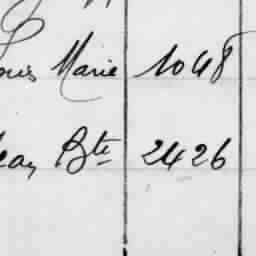 ouis Marie 1048
ean Bte 2426